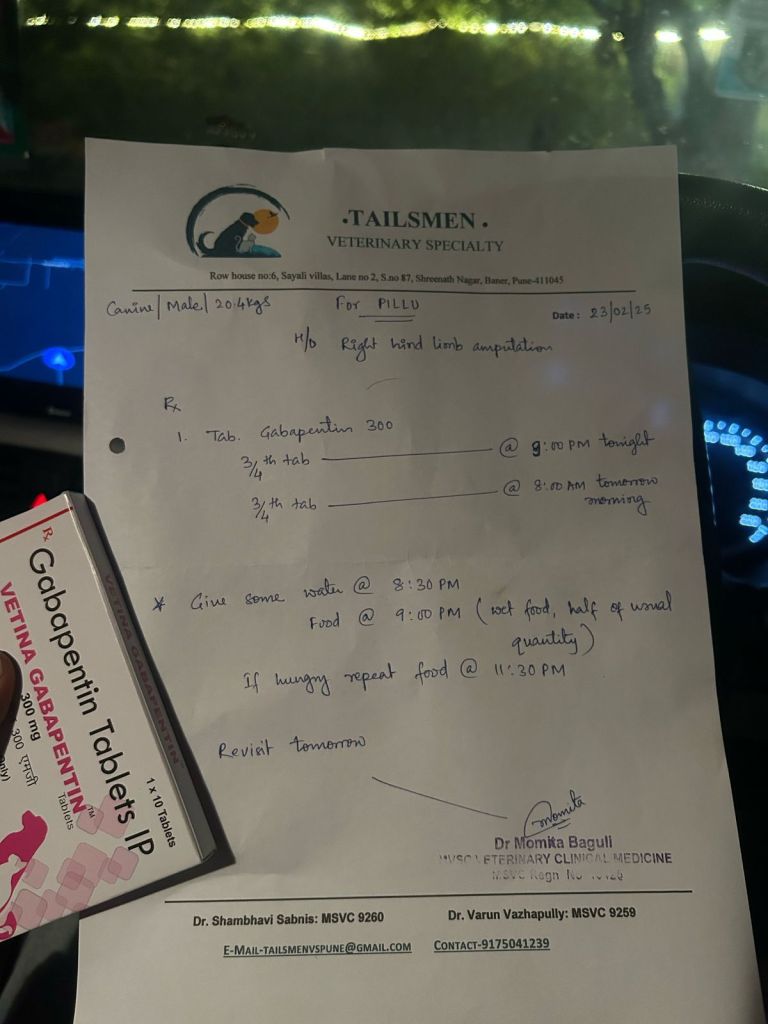 •TAILSMEN•
VETERINARY SPECIALTY
Row house no:6, Sayali villas, Lane no 2, S.no 87, Shreenath Nagar, Baner, Pune-411045
Canine/Male/20.4kgs
For PILLU
Date: 23/02/25
H/o Right hind limb amputation
Rx
1. Tab. Gabapentin 300
3/4 th tab @ 9:00 PM tonight
3/4 th tab @ 8:00 AM tomorrow
morning
* Give some water @ 8:30 PM
Food @ 9:00 PM (wet food, half of usual
quantity)
If hungry repeat food @ 11:30 PM
Revisit tomorrow
Momita
Dr Momita Baguli
VETERINARY CLINICAL MEDICINE
MSVC Regn No
Dr. Shambhavi Sabnis: MSVC 9260
Dr. Varun Vazhapully: MSVC 9259
E-MAIL-TAILSMENVSPUNE@GMAIL.COM
CONTACT-9175041239
Rx
Gabapentin Tablets IP
VETINA GABAPENTIN™
Tablets
300 mg
300 एमजी
only)
1 x 10 Tablets
VETINA GABAPENTIN